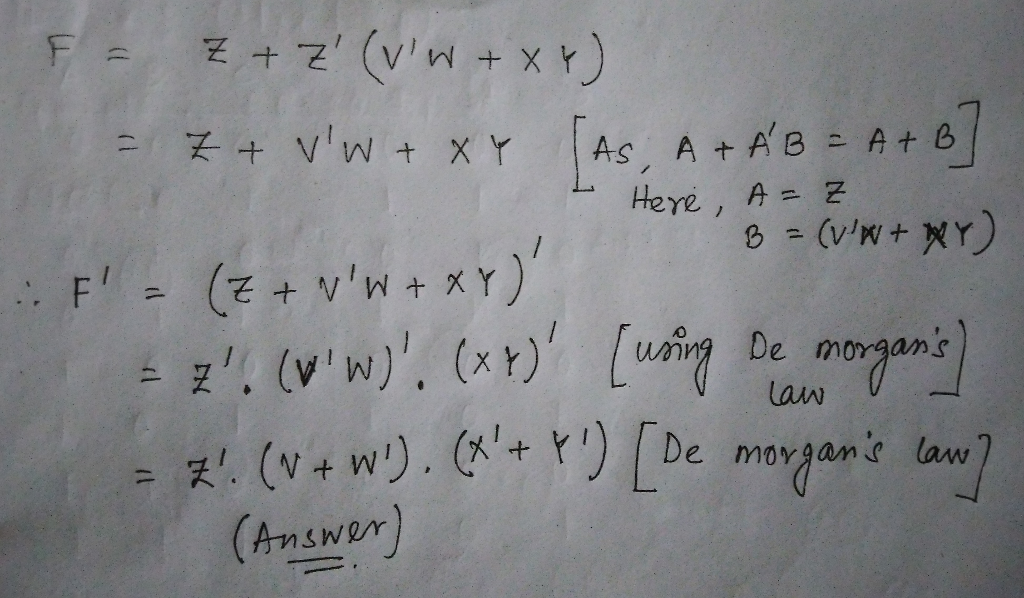 F = Z + Z' (V'W + XY)
= Z + V'W + XY [As, A + A'B = A + B]
Here, A = Z
B = (V'W + XY)
∴ F' = (Z + V'W + XY)'
= Z'. (V'W)'. (XY)' [using De morgan's law]
= Z'. (V + W'). (X' + Y') [De morgan's law]
(Answer)